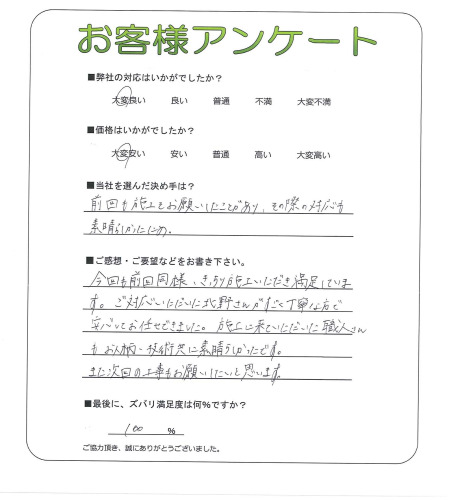 お客様アンケート
■弊社の対応はいかがでしたか？
大変良い 良い 普通 不満 大変不満
■価格はいかがでしたか？
大変安い 安い 普通 高い 大変高い
■当社を選んだ決め手は？
前回も施工をお願いしたことがあり、その際の対応も
素晴らしかったため。
■ご感想・ご要望などをお書き下さい。
今回も前回同様、きっちり施工いただき満足していま
す。ご対応いただいた北野さんがすごく丁寧な方で
安心してお任せできました。施工に来ていただいた職人さん
もお人柄・技術共に素晴らしかったです。
また次回の工事もお願いしたいと思います。
■最後に、ズバリ満足度は何%ですか？
100 %
ご協力頂き、誠にありがとうございました。